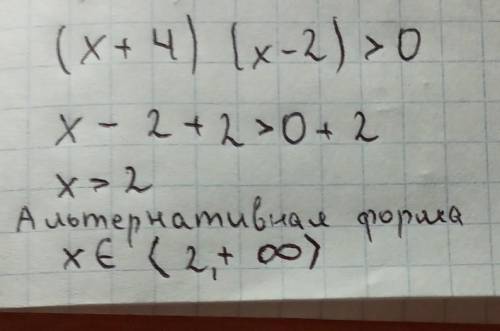 (x + 4) (x - 2) > 0
x - 2 + 2 > 0 + 2
x > 2
Альтернативная форма
x ∈ ⟨2, + ∞⟩